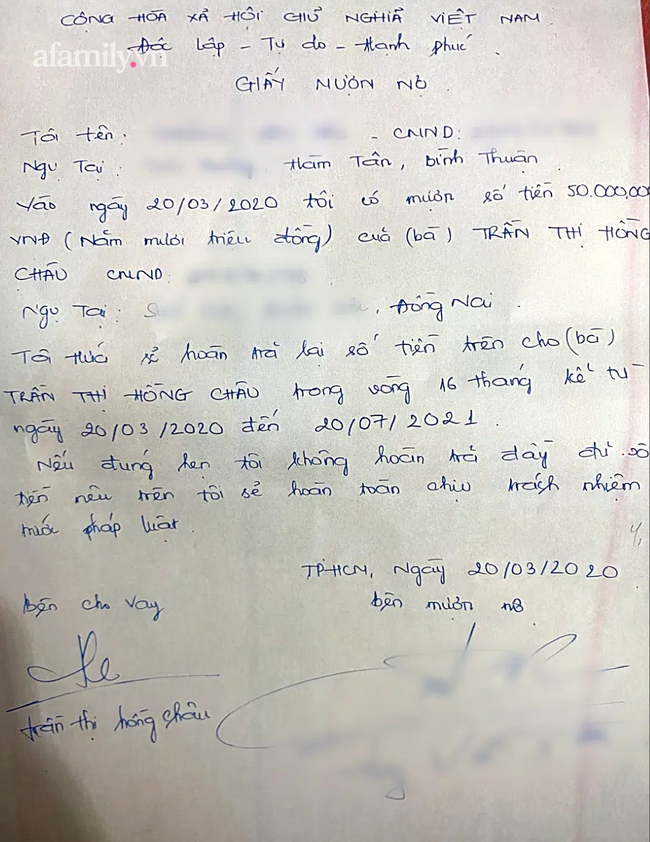 CỘNG HÒA XÃ HỘI CHỦ NGHĨA VIỆT NAM.
Độc Lập - Tự do - Hạnh phúc.
afamily.vn
GIẤY MƯỢN NỢ
Tôi tên: - CMND:
Ngụ Tại: Hàm Tân, Bình Thuận
Vào ngày 20/03/2020 tôi có mượn số tiền 50.000.00
VNĐ (Năm mươi triệu đồng) của (bà) TRẦN THỊ HỒNG
CHÂU CMND:
Ngụ Tại: , Đồng Nai.
Tôi hứa sẽ hoàn trả lại số tiền trên cho (bà)
TRẦN THỊ HỒNG CHÂU trong vòng 16 tháng kể từ
ngày 20/03/2020 đến 20/07/2021.
Nếu đúng hẹn tôi không hoàn trả đầy đủ số
tiền nêu trên tôi sẽ hoàn toàn chịu trách nhiệm
trước pháp luật.
TPHCM, Ngày 20/03/2020
bên cho vay bên mượn nợ
trần thị hồng châu